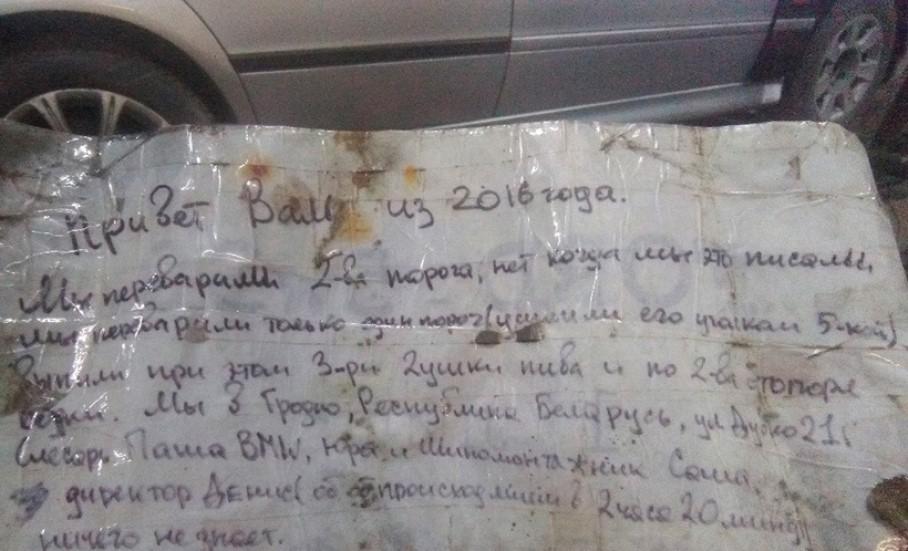 Привет Вам из 2016 года.
Мы переварили 2-ва порога, нет когда мы это писали,
мы переварили только один порог (усилили его уголком 5-кой)
Выпили при этом 3-ри 2ушки пива и по 2-ва стопаря
водки. Мы в Гродно, Республика Беларусь, ул Дубко 21
Слесарь Паша BMW, Юра и Шиномонтажник Саша,
директор Денис об происходящем в 2 часа 20 минут
ничего не знает.